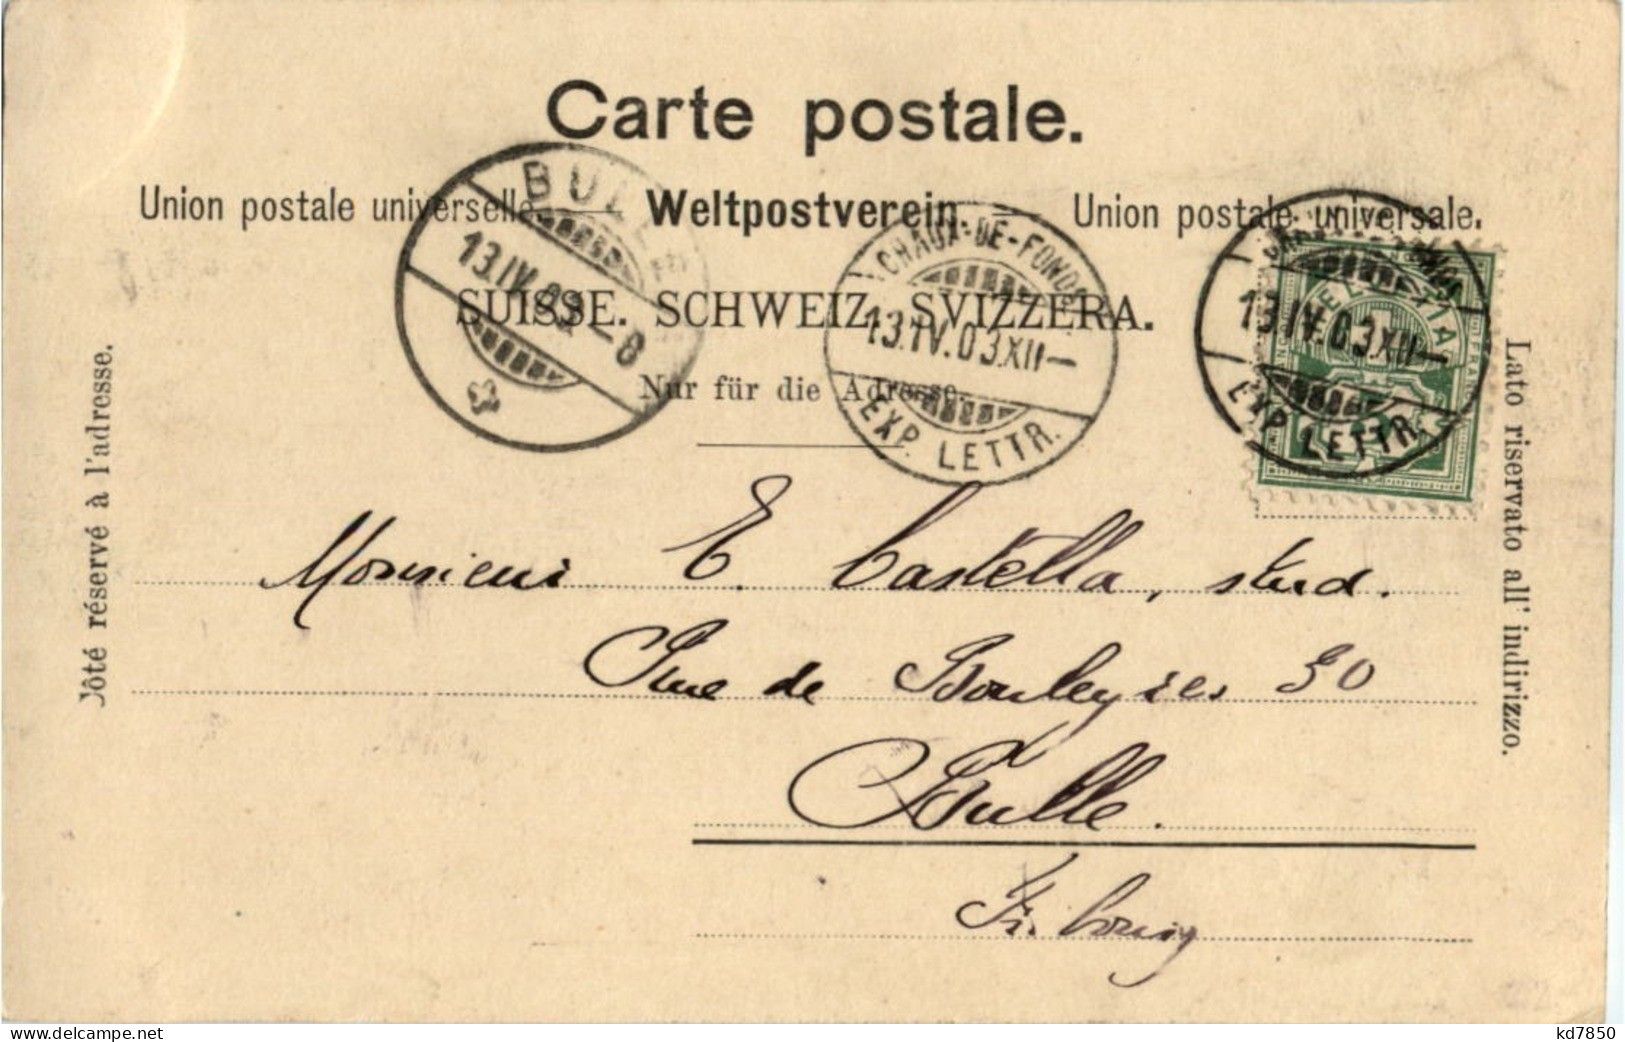 Carte postale.
Union postale universelle. Weltpostverein. Union postale universale.
SUISSE. SCHWEIZ. SVIZZERA.
Nur für die Adresse.
Côté réservé à l'adresse.
Lato riservato all' indirizzo.
BULLE
13.IV.03.–8
CHAUX-DE-FONDS
13.IV.03.XII–
EXP. LETTR.
CHAUX-DE-FONDS
13.IV.03.XII–
EXP. LETTR.
HELVETIA
Monsieur E. Castella, stud.
Rue de Bouleyres 30
Bulle.
Fribourg
www.delcampe.net
kd7850